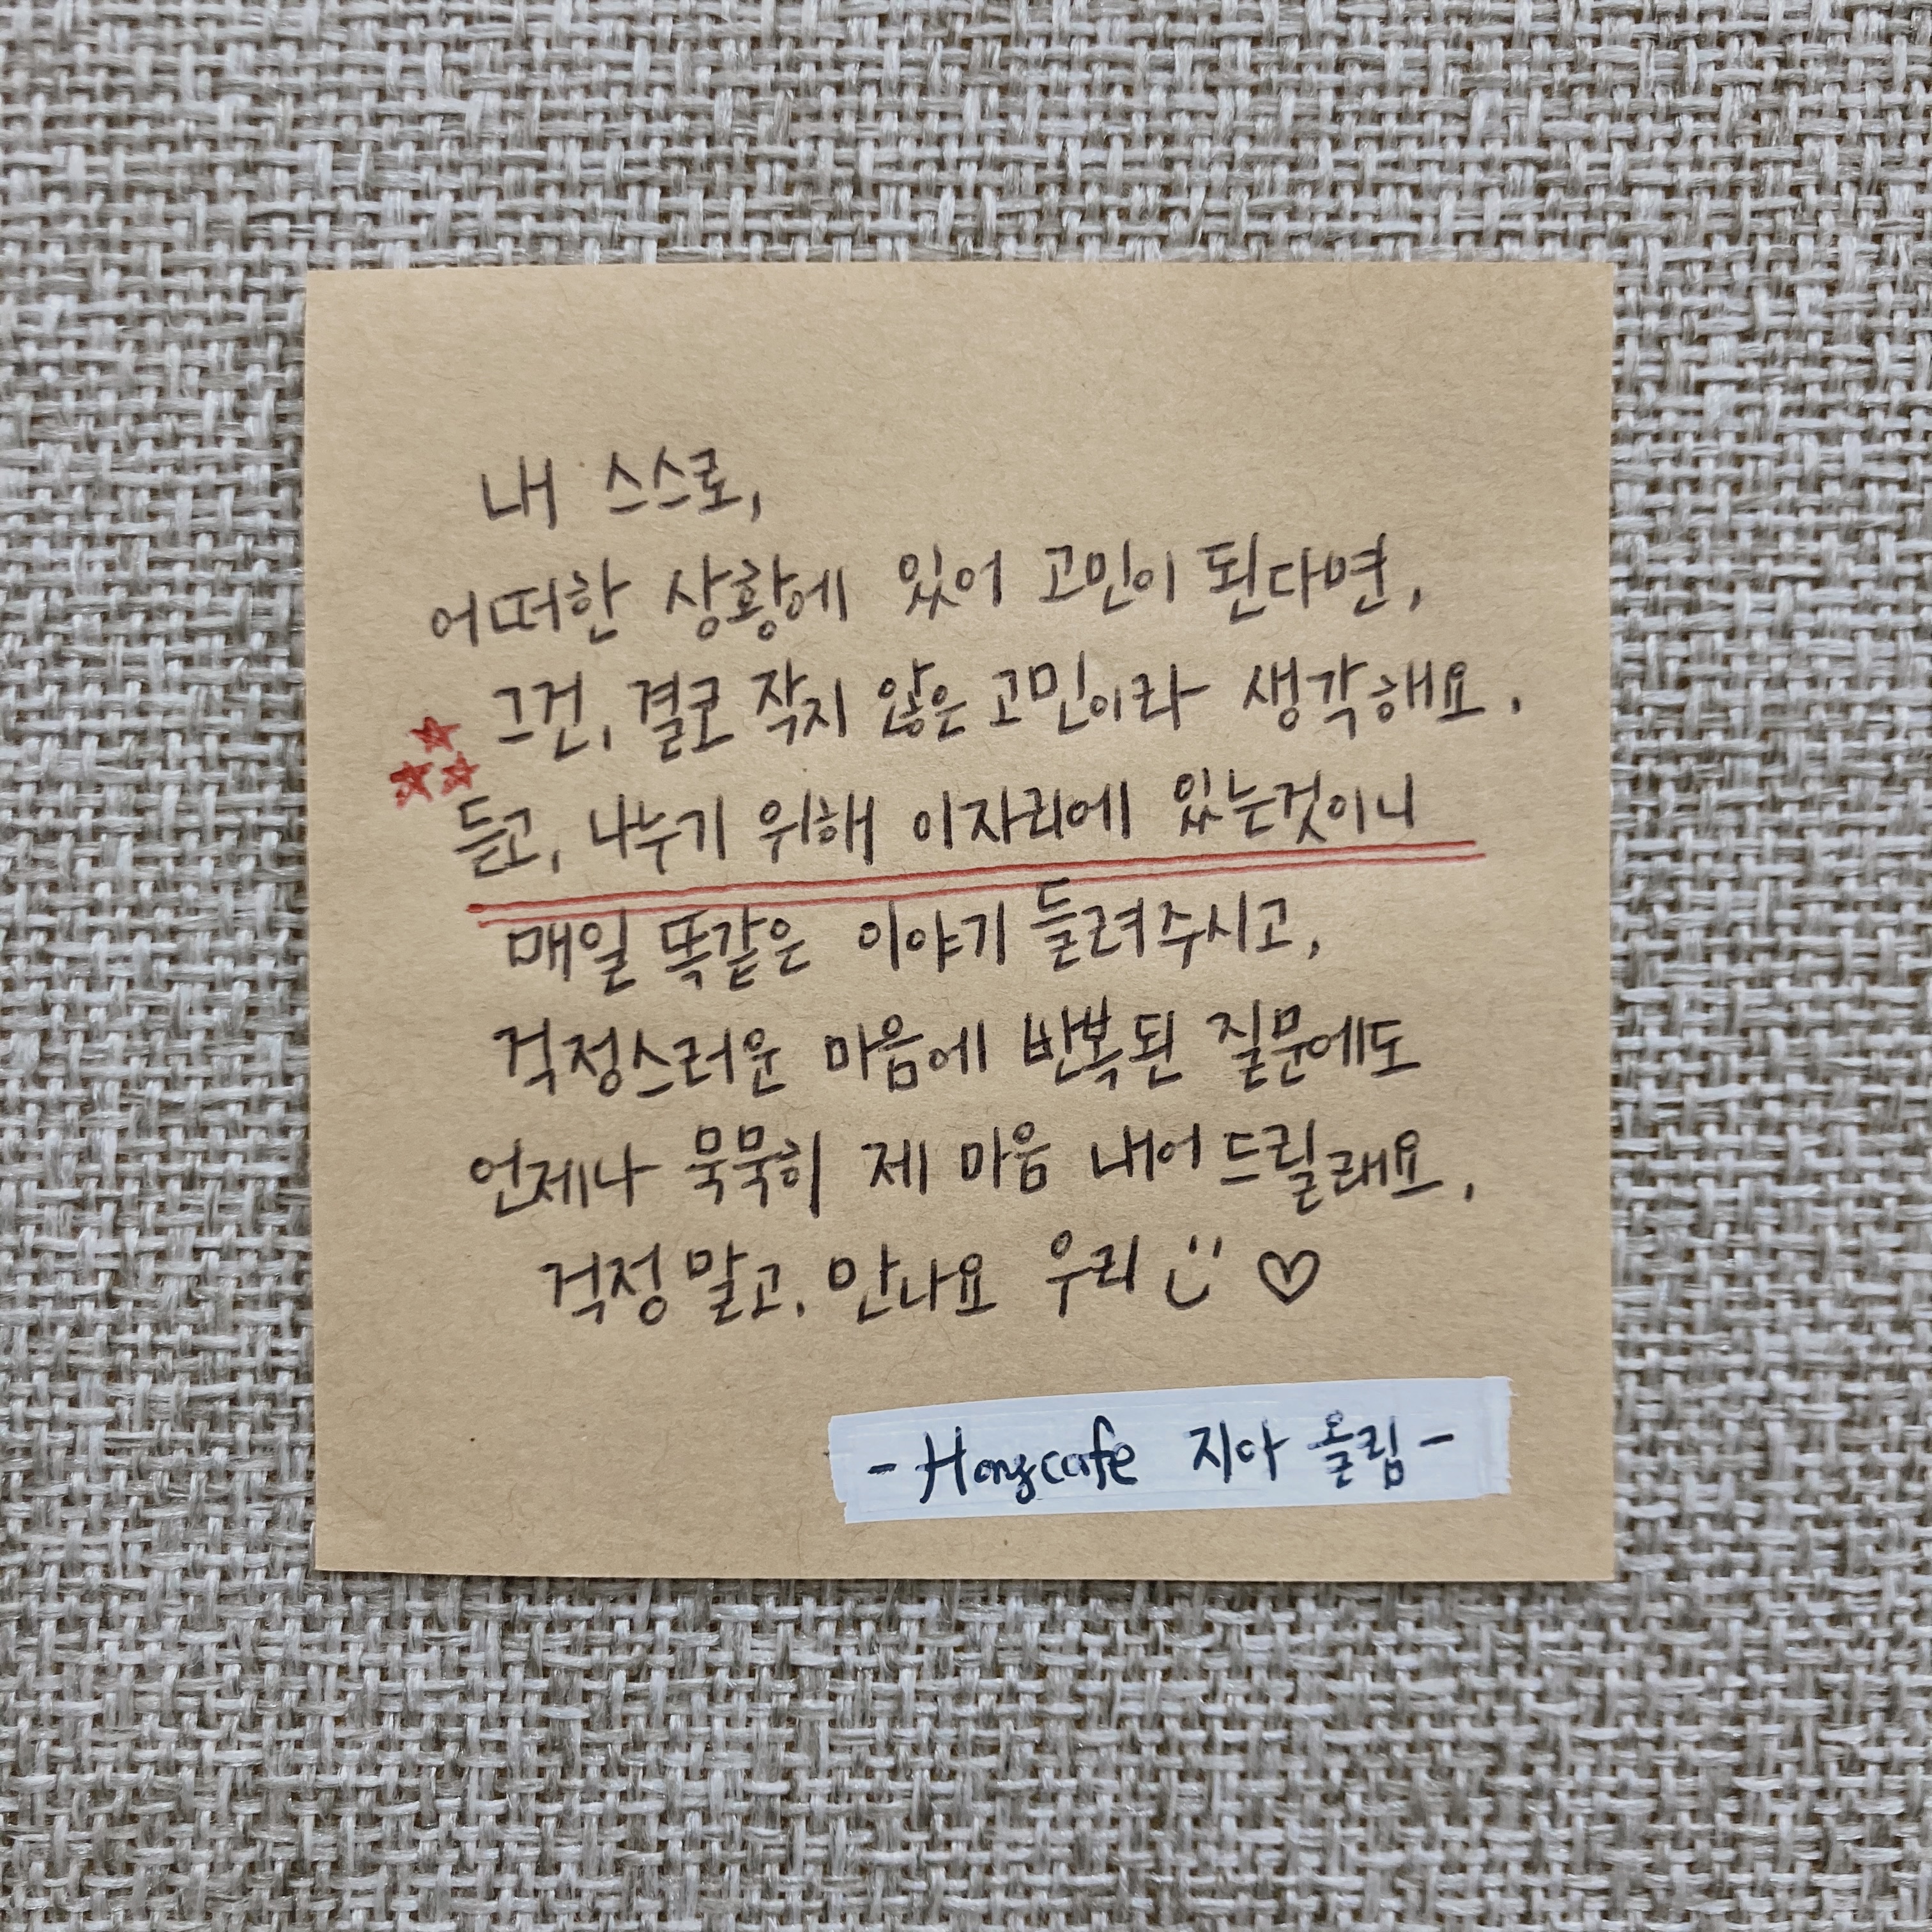 내 스스로,
어떠한 상황에 있어 고민이 된다면,
그건, 결코 작지 않은 고민이라 생각해요.
듣고, 나누기 위해 이자리에 있는것이니
매일 똑같은 이야기 들려주시고,
걱정스러운 마음에 반복된 질문에도
언제나 묵묵히 제 마음 내어 드릴래요.
걱정 말고, 만나요 우리
- Hongcafe 지아 올림 -